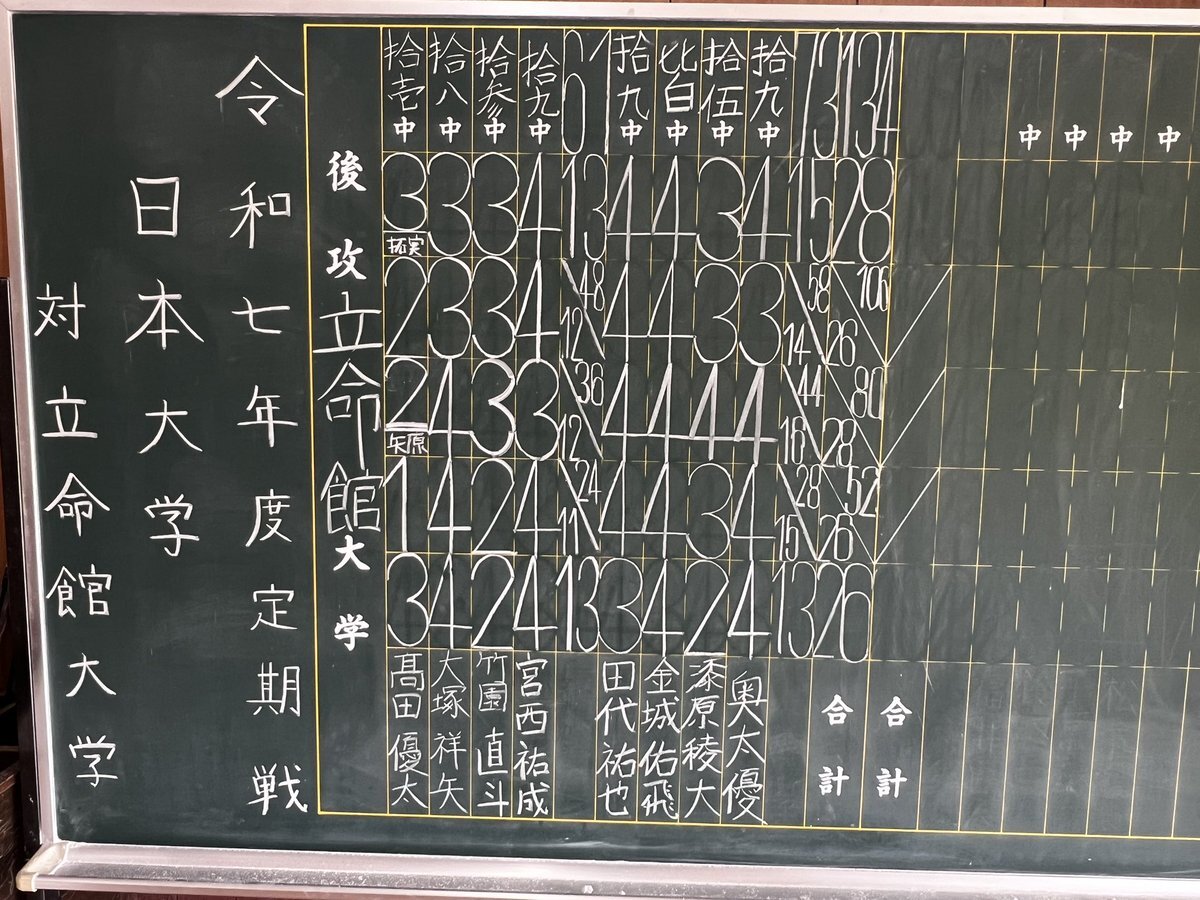 令和七年度定期戦
日本大学
対立命館大学
後攻 立命館大学
拾壱中 拾八中 拾参中 拾九中 61 拾九中 皆中 拾伍中 拾九中 73 134 中 中 中 中
3 3 3 4 13 4 4 3 4 15 28
拓実
2 3 3 4 48 12 4 4 3 3 58 14 106 26
2 4 3 3 36 12 4 4 4 4 44 16 80 28
矢原
1 4 2 4 24 11 4 4 3 4 28 15 52 26
3 4 2 4 13 3 4 2 4 13 26
髙田優太
大塚祥矢
竹園直斗
宮西祐成
田代祐也
金城佑飛
漆原稜大
奥太優
合計
合計